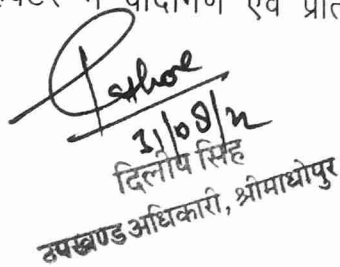 में वादीगण एवं
31/08/22
दिलीप सिंह
उपखण्ड अधिकारी, श्रीमाधोपुर